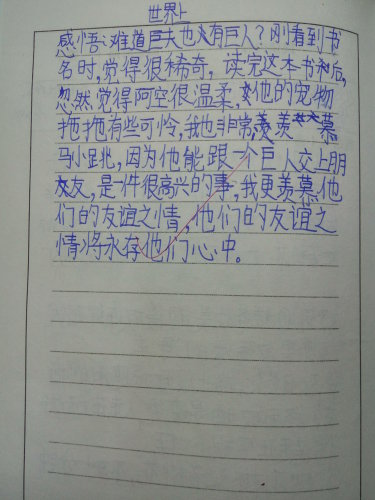 世界上
感悟：难道巨夫也有巨人？刚看到书
名时，觉得很稀奇，读完这本书后，
忽然觉得阿空很温柔，她的宠物
拖拖有些可怜，我也非常羡慕
马小跳，因为他能跟一个巨人交上朋
友，是一件很高兴的事，我更羡慕他
们的友谊之情，他们的友谊之
情将永存他们心中。